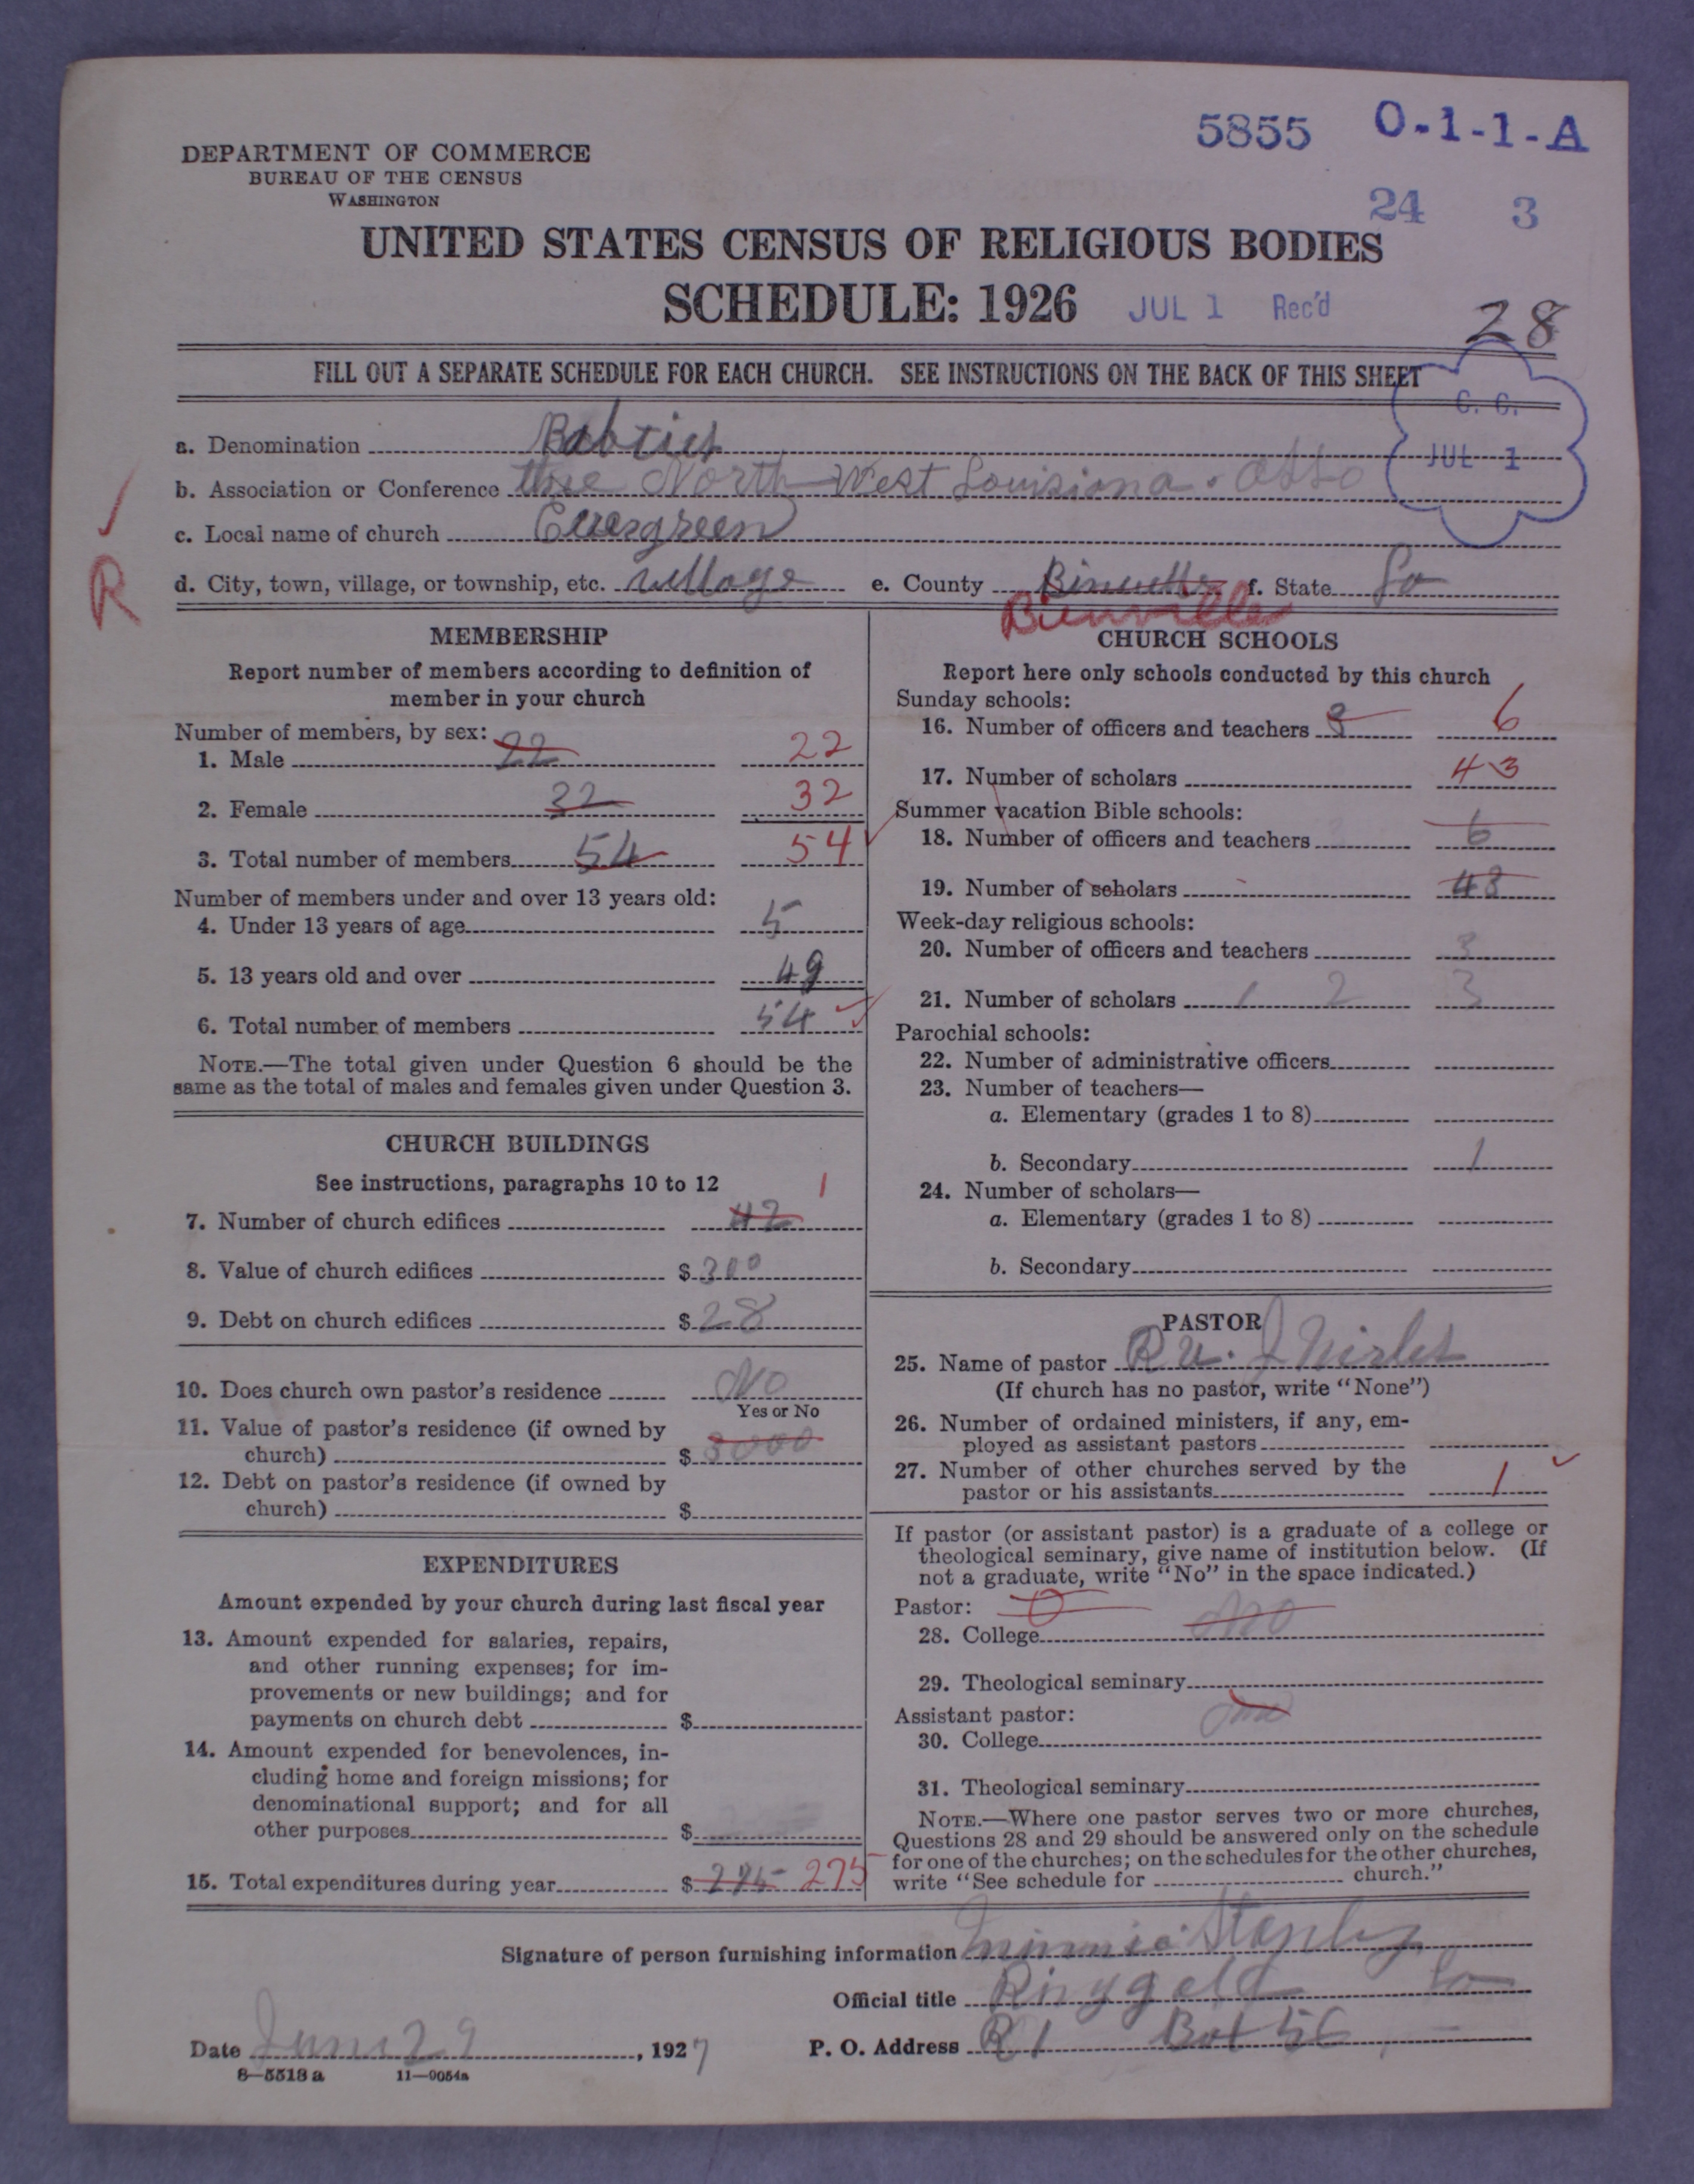 5855 O-1-1-A
DEPARTMENT OF COMMERCE
BUREAU OF THE CENSUS
WASHINGTON
24 3
UNITED STATES CENSUS OF RELIGIOUS BODIES
SCHEDULE: 1926 JUL 1 Rec'd
28
FILL OUT A SEPARATE SCHEDULE FOR EACH CHURCH. SEE INSTRUCTIONS ON THE BACK OF THIS SHEET
C. C.
JUL 1
a. Denomination
b. Association or Conference the North West Louisiana Asso
c. Local name of church Evergreen
R
d. City, town, village, or township, etc. village e. County Bienville f. State La
MEMBERSHIP
Report number of members according to definition of
member in your church
Number of members, by sex:
1. Male 22 22
2. Female 32 32
3. Total number of members 54 54
Number of members under and over 13 years old:
4. Under 13 years of age 5
5. 13 years old and over 49
6. Total number of members 54
NOTE.—The total given under Question 6 should be the
same as the total of males and females given under Question 3.
CHURCH BUILDINGS
See instructions, paragraphs 10 to 12 1
7. Number of church edifices 42
8. Value of church edifices $ 300
9. Debt on church edifices $ 28
10. Does church own pastor's residence No
Yes or No
11. Value of pastor's residence (if owned by
church) $ 3000
12. Debt on pastor's residence (if owned by
church) $
EXPENDITURES
Amount expended by your church during last fiscal year
13. Amount expended for salaries, repairs,
and other running expenses; for im-
provements or new buildings; and for
payments on church debt $
14. Amount expended for benevolences, in-
cluding home and foreign missions; for
denominational support; and for all
other purposes $
15. Total expenditures during year $ 275
CHURCH SCHOOLS
Report here only schools conducted by this church
Sunday schools:
16. Number of officers and teachers 3 6
17. Number of scholars 43
Summer vacation Bible schools:
18. Number of officers and teachers 6
19. Number of scholars 43
Week-day religious schools:
20. Number of officers and teachers 3
21. Number of scholars 1 2 3
Parochial schools:
22. Number of administrative officers
23. Number of teachers—
a. Elementary (grades 1 to 8)
b. Secondary 1
24. Number of scholars—
a. Elementary (grades 1 to 8)
b. Secondary
PASTOR
25. Name of pastor
(If church has no pastor, write "None")
26. Number of ordained ministers, if any, em-
ployed as assistant pastors
27. Number of other churches served by the
pastor or his assistants 1
If pastor (or assistant pastor) is a graduate of a college or
theological seminary, give name of institution below. (If
not a graduate, write "No" in the space indicated.)
Pastor: 0
28. College no
29. Theological seminary
Assistant pastor:
30. College
31. Theological seminary
NOTE.—Where one pastor serves two or more churches,
Questions 28 and 29 should be answered only on the schedule
for one of the churches; on the schedules for the other churches,
write "See schedule for church."
Signature of person furnishing information Minnie Stanley
Official title Ringgold La
Date June 29, 1927 P. O. Address R 1 Box 56
8—5513 a 11—9054a